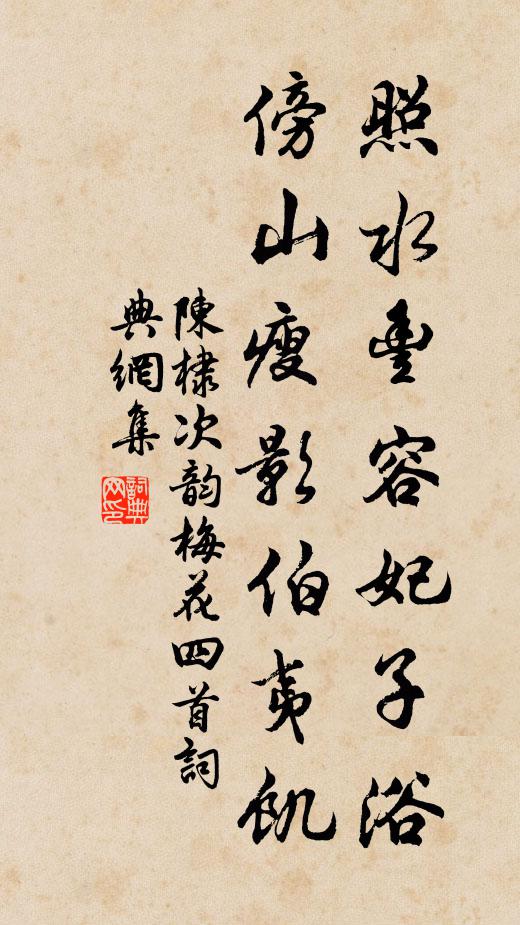 照水豊容妃子浴
傍山瘦影伯夷飢
陳棣次韵梅花四首詞
典網集
詞典
网印